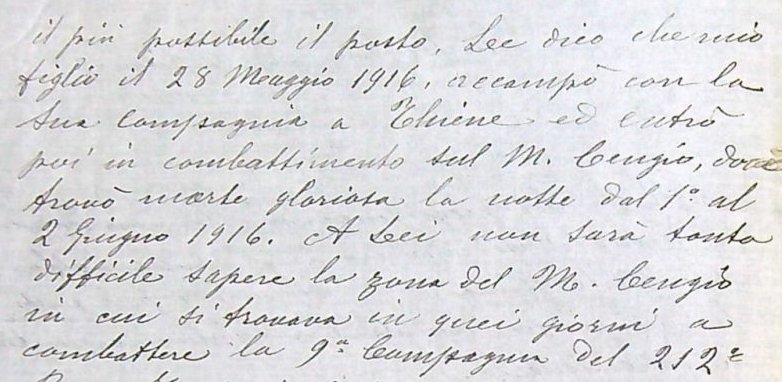 il più possibile il posto. Lee dico che mio
figlio il 28 Maggio 1916, accampò con la
sua Compagnia a Thiene ed entrò
poi in combattimento sul M. Cengio, dove
trovò morte gloriosa la notte dal 1° al
2 Giugno 1916. A Lei non sarà tanto
difficile sapere la zona del M. Cengio
in cui si trovava in quei giorni a
combattere la 9ª Compagnia del 212°